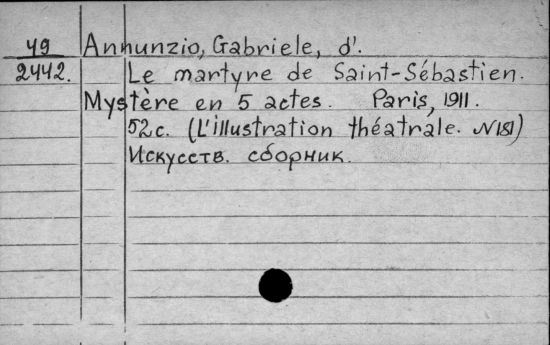 49 Annunzio, Gabriele, d'.
2442. Le martyre de Saint-Sébastien.
Mystère en 5 actes. Paris, 1911.
52c. (L'illustration théatrale. N181)
Искусств. сборник.